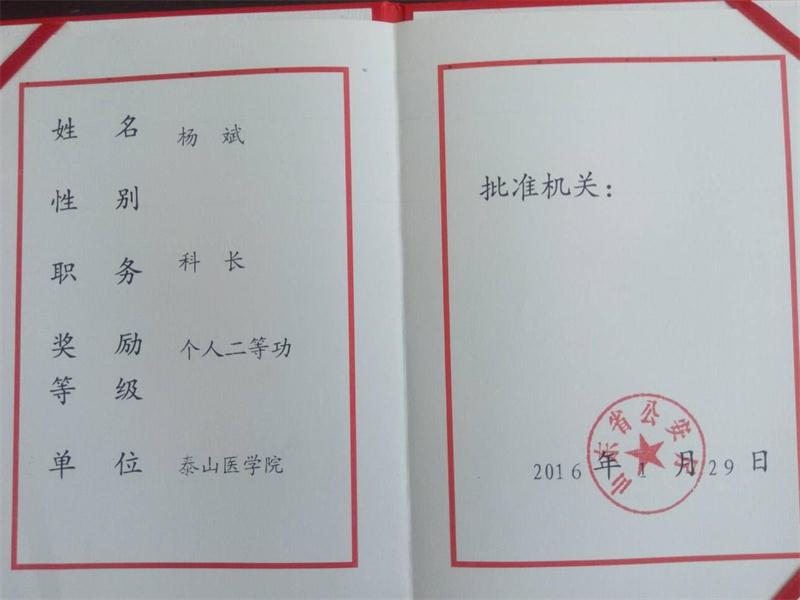 姓名 杨斌
性别
职务 科长
奖励 个人二等功
等级
单位 泰山医学院
批准机关：
山东省公安厅
2016年1月29日